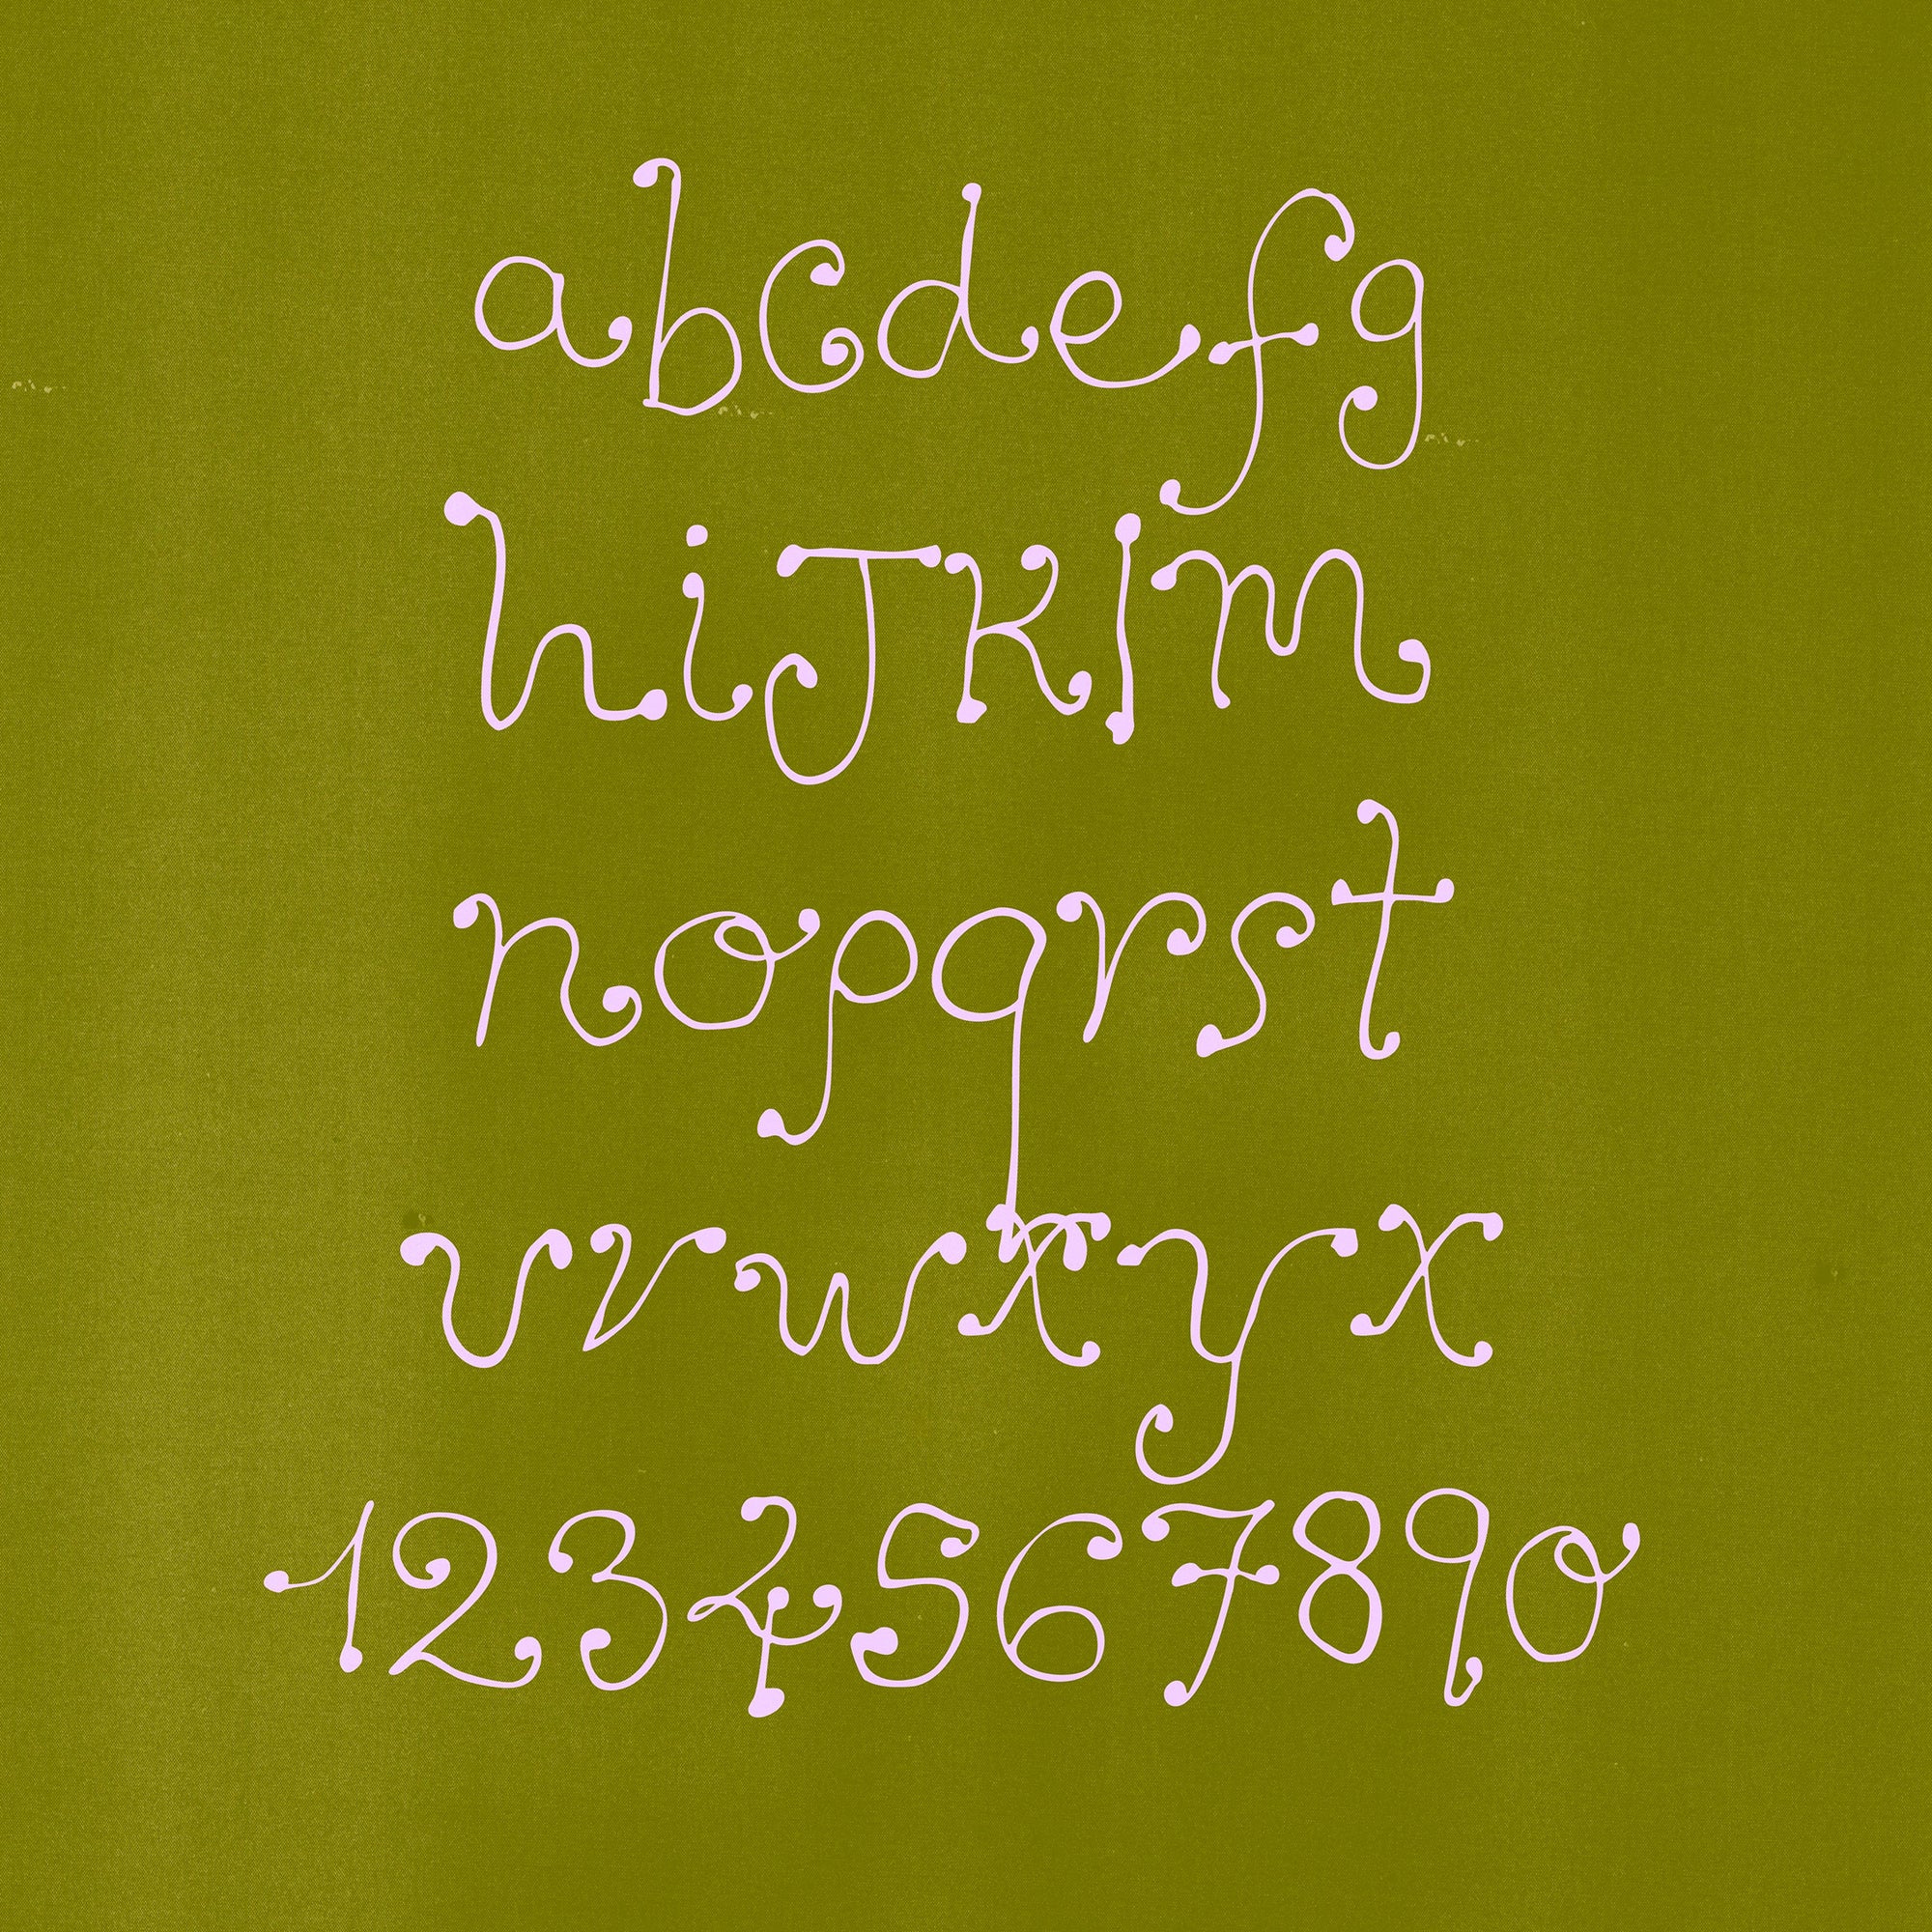 abcdefg
hiJKlm
nopqrst
uvwxyx
1234567890